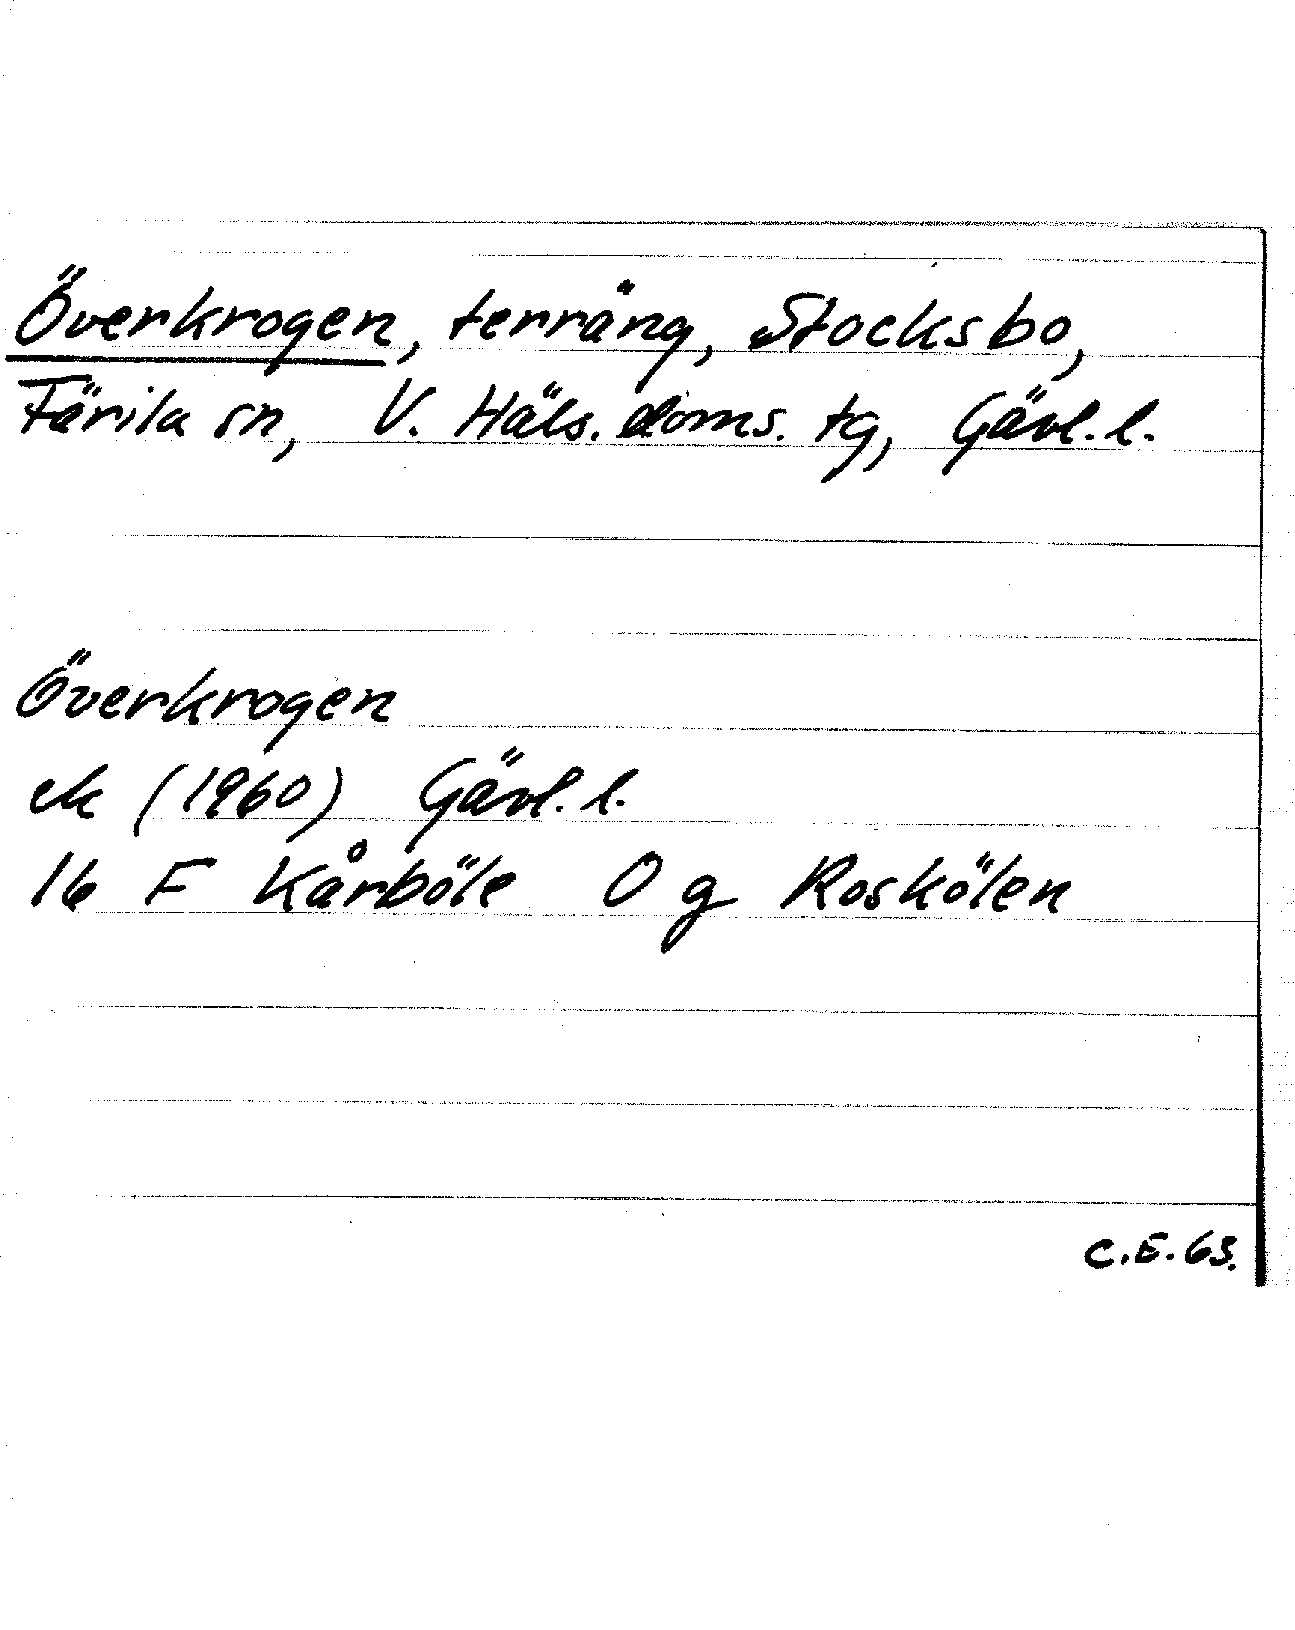 Överkrogen, terräng, Stocksbo,
Färila sn, V. Häls. doms. tg, Gävl. l.
Överkrogen
ek (1960) Gävl. l.
16 F Kårböle 0 g Roskölen
C.E. 63.